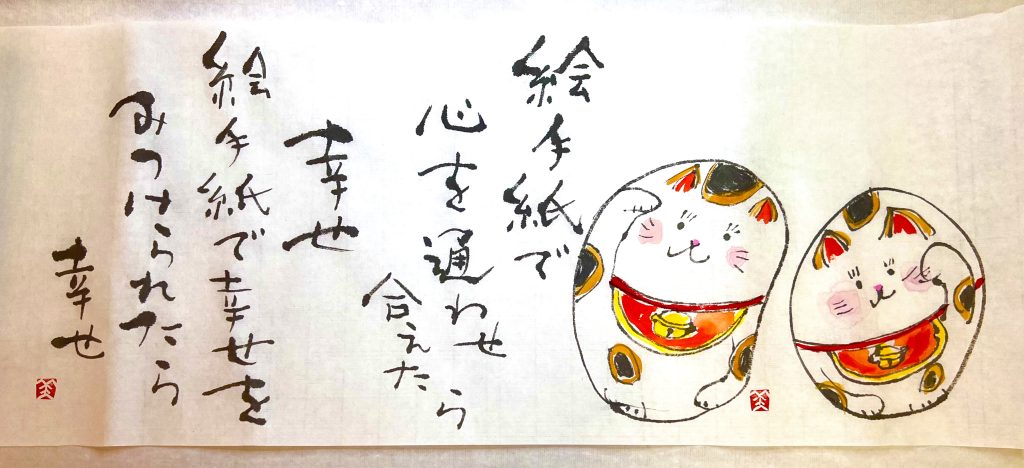 絵手紙で
心を通わせ
合えたら
幸せ
絵手紙で幸せを
みつけられたら
幸せ